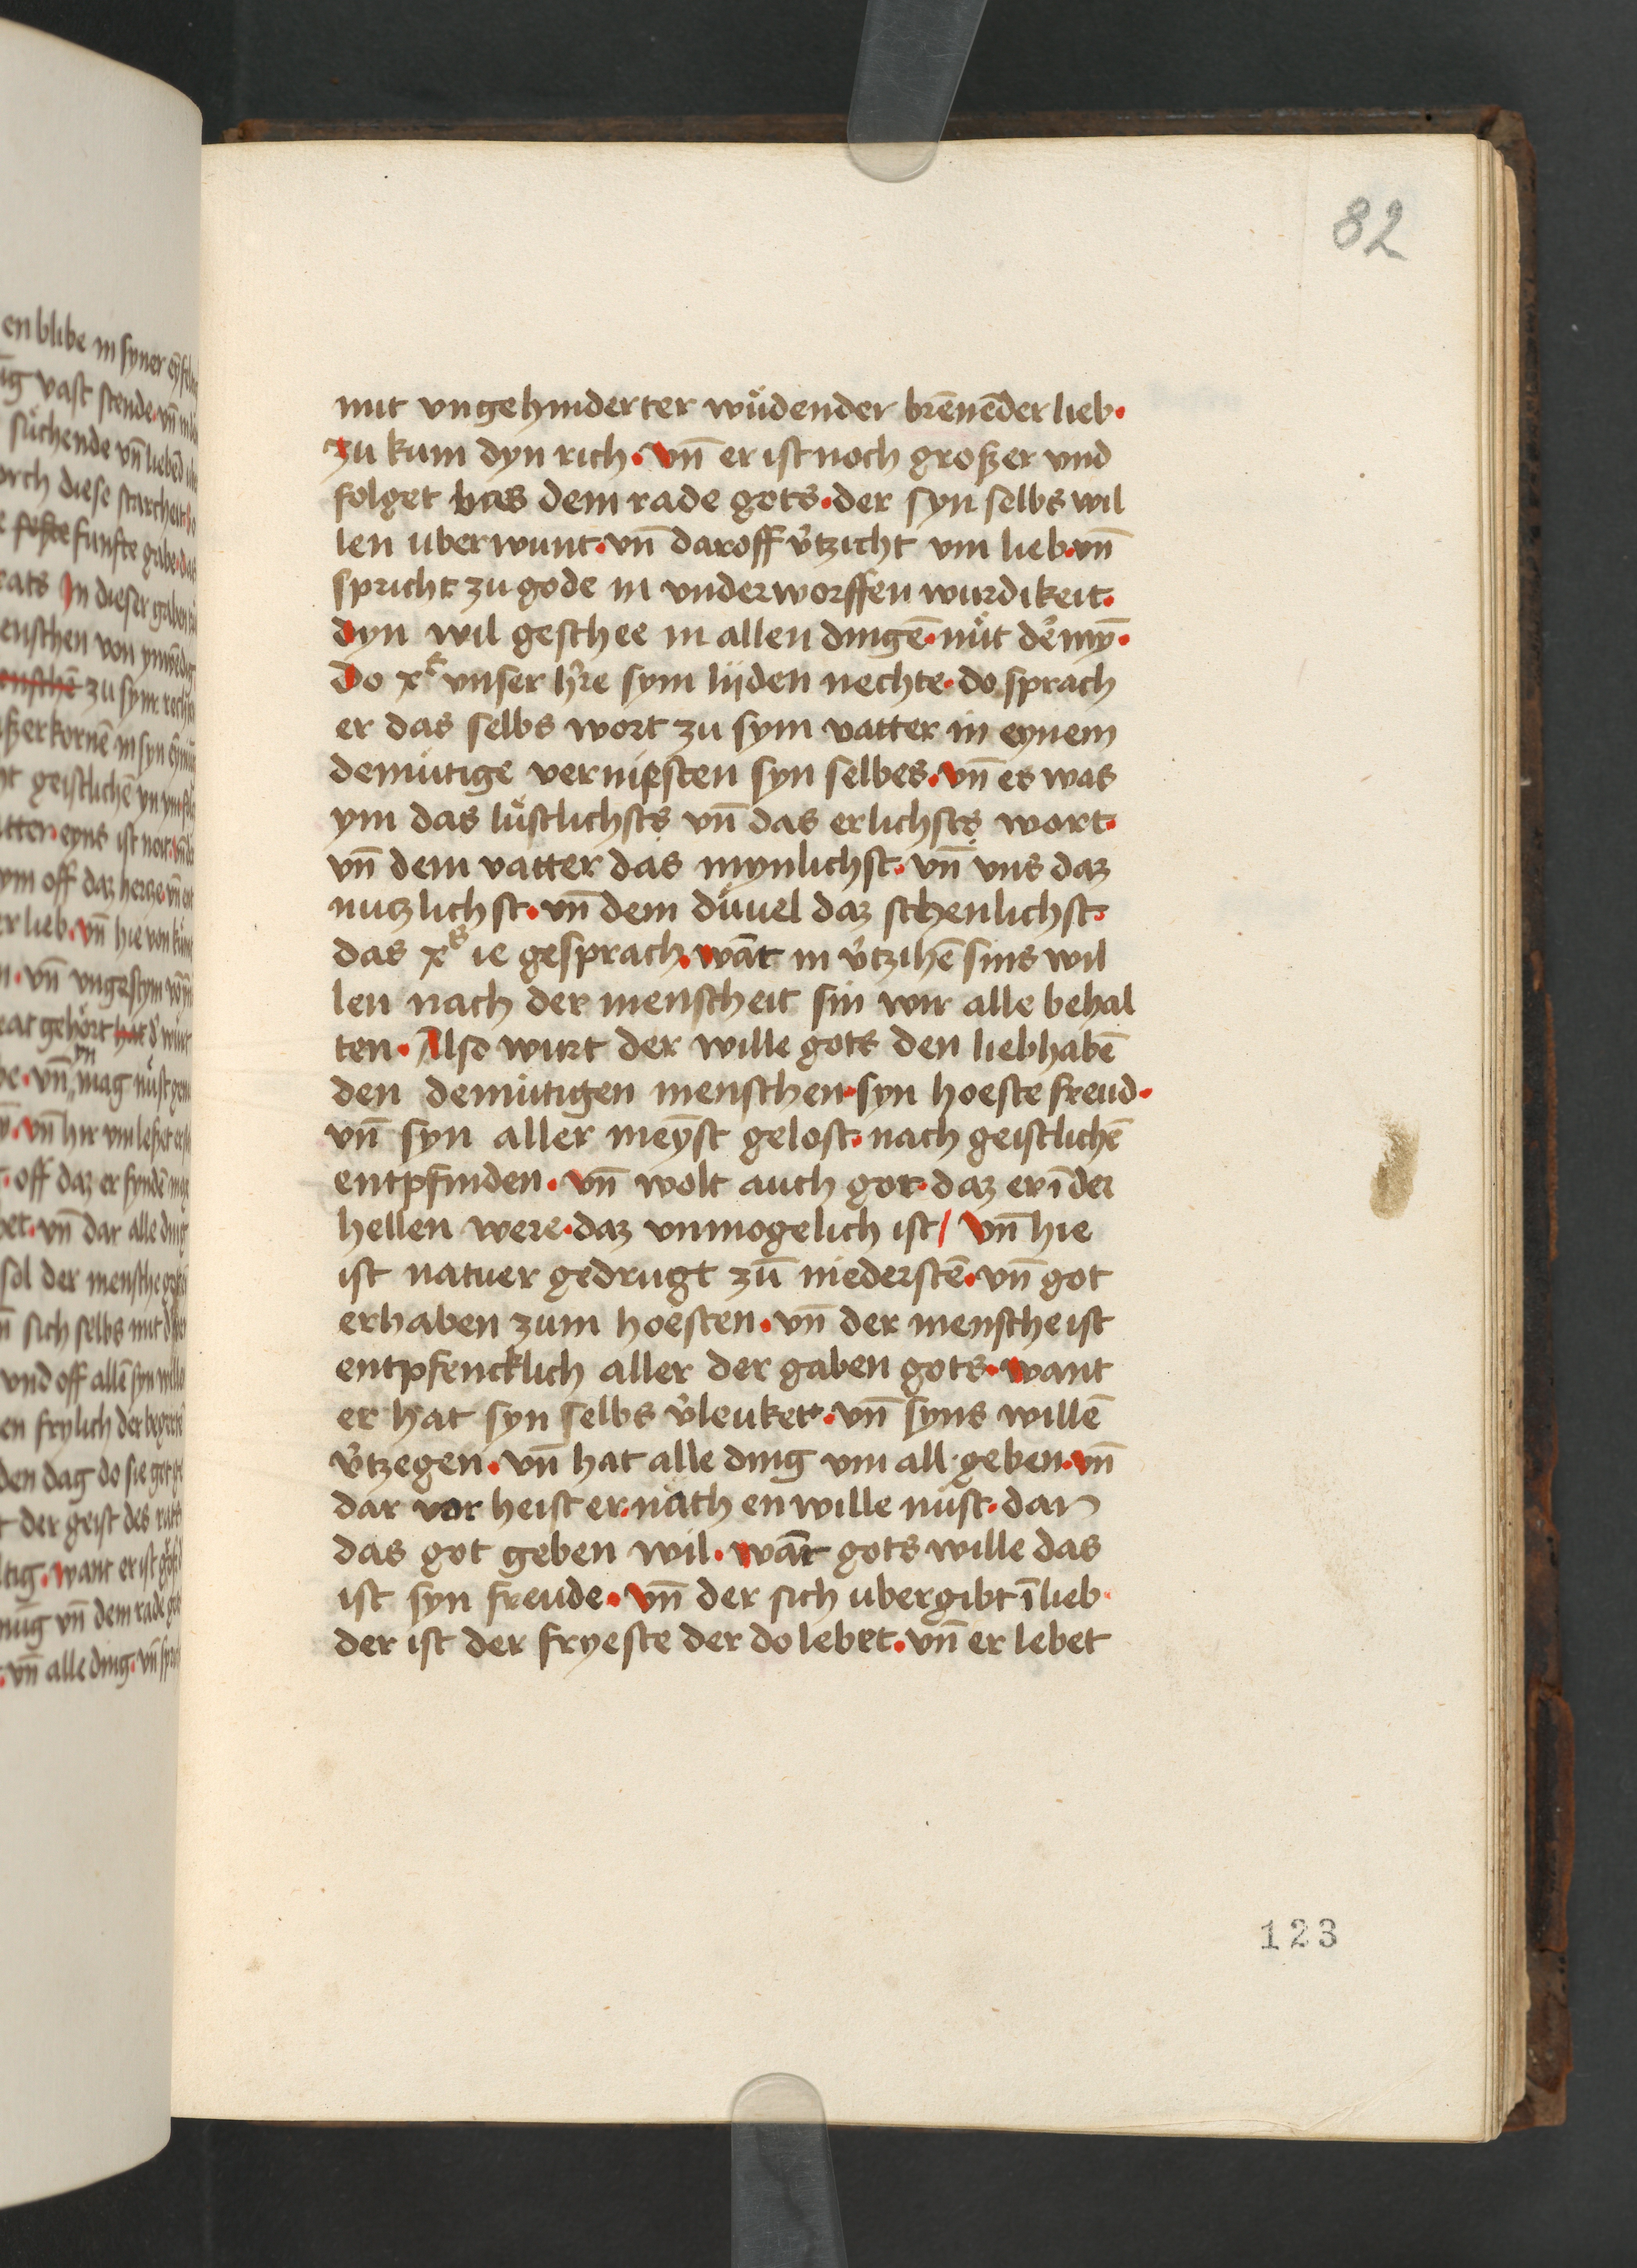 82
mit vngehinderter wu̇dender brēnēder lieb·
zu kum dyn rich· vn̄ er ist noch großer vnd
folget bas dem rade gots· der syn selbs wil
len uberwint· vn̄ daroff v̓tzicht vm lieb· vn̄
spricht zu gode in vnderworffen wurdikeit·
dyn wil geschee in allen dingē· nu̇t de̓ myn̄·
Do xͨ vnser hr̄e sym lijden nechte· do sprach
er das selbs wort zu sym vatter in eynem
demutige vernipsten syn selbes· vn̄ es was
ym das lu̇stlichsts vn̄ das erlichsts wort·
vn̄ dem vatter das mynlichst· vn̄ vns daz
nutzlichst· vn̄ dem du̇uel daz schenlichst·
das xˢ ie gesprach· wāt in v̓tzihē sins wil
len nach der menscheit sin wir alle behal
ten· Also wurt der wille gots den liebhabē
den demutigen menschen· syn hoeste freud·
vn̄ syn aller meyst gelost· nach geistlichē
entpfinden· vn̄ wolt auch got· daz er ī der
hellen were· daz vnmogelich ist/ vn̄ hie
ist natuer gedrugt zū niederstē· vn̄ got
erhaben zum hoesten· vn̄ der mensche ist
entpfencklich aller der gaben gots· want
er hat syn selbs v̓leuket· vn̄ syns willē
v̓tzegen· vn̄ hat alle ding vm all geben· vn̄
dar vor heist er· nach en wille nu̇st· dan
das got geben wil· wāt gots wille das
ist syn freude· vn̄ der sich ubergibt ī lieb·
der ist der fryeste der do lebet· vn̄ er lebet
123